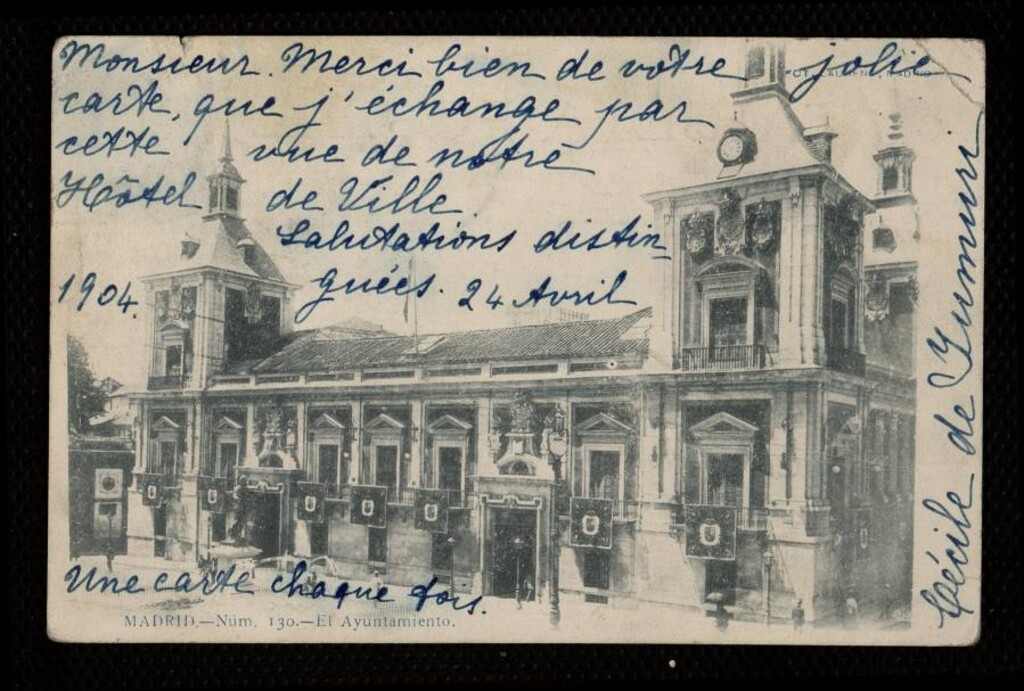 Monsieur. Merci bien de votre jolie
carte, que j'échange par
cette vue de notre
Hôtel de Ville.
Salutations distin
guées. 24 Avril
1904.
Une carte chaque fois.
MADRID.—Núm. 130.—El Ayuntamiento.
MADRID
Cécile de